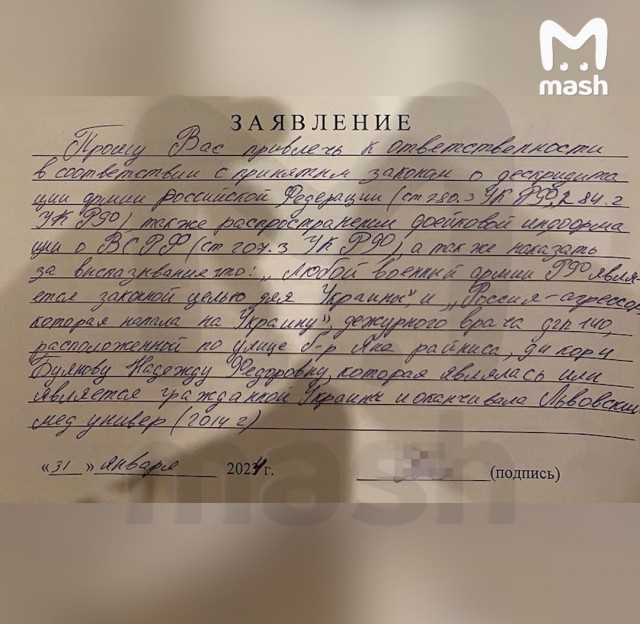 mash
ЗАЯВЛЕНИЕ
Прошу Вас привлечь к ответственности
в соответствии с принятым законам о дескридита
ции армии Российской Федерации (ст 280.3 УК РФ, 284.2
УК РФ), также распространении фейковой информа
ции о ВС РФ (ст 207.3 УК РФ), а так же наказать
за высказывание что: „Любой военный армии РФ явля-
ется законной целью для Украины", и „Россия-агрессор,
которая напала на Украину", дежурного врача дгп 140,
расположенной по улице б-р Яна райниса,
Буянову Надежду Федоровну, которая являлась или
является гражданкой Украины и оканчивала Львовский
мед универ (2014 г)
«31» января 2024 г. (подпись)
mash